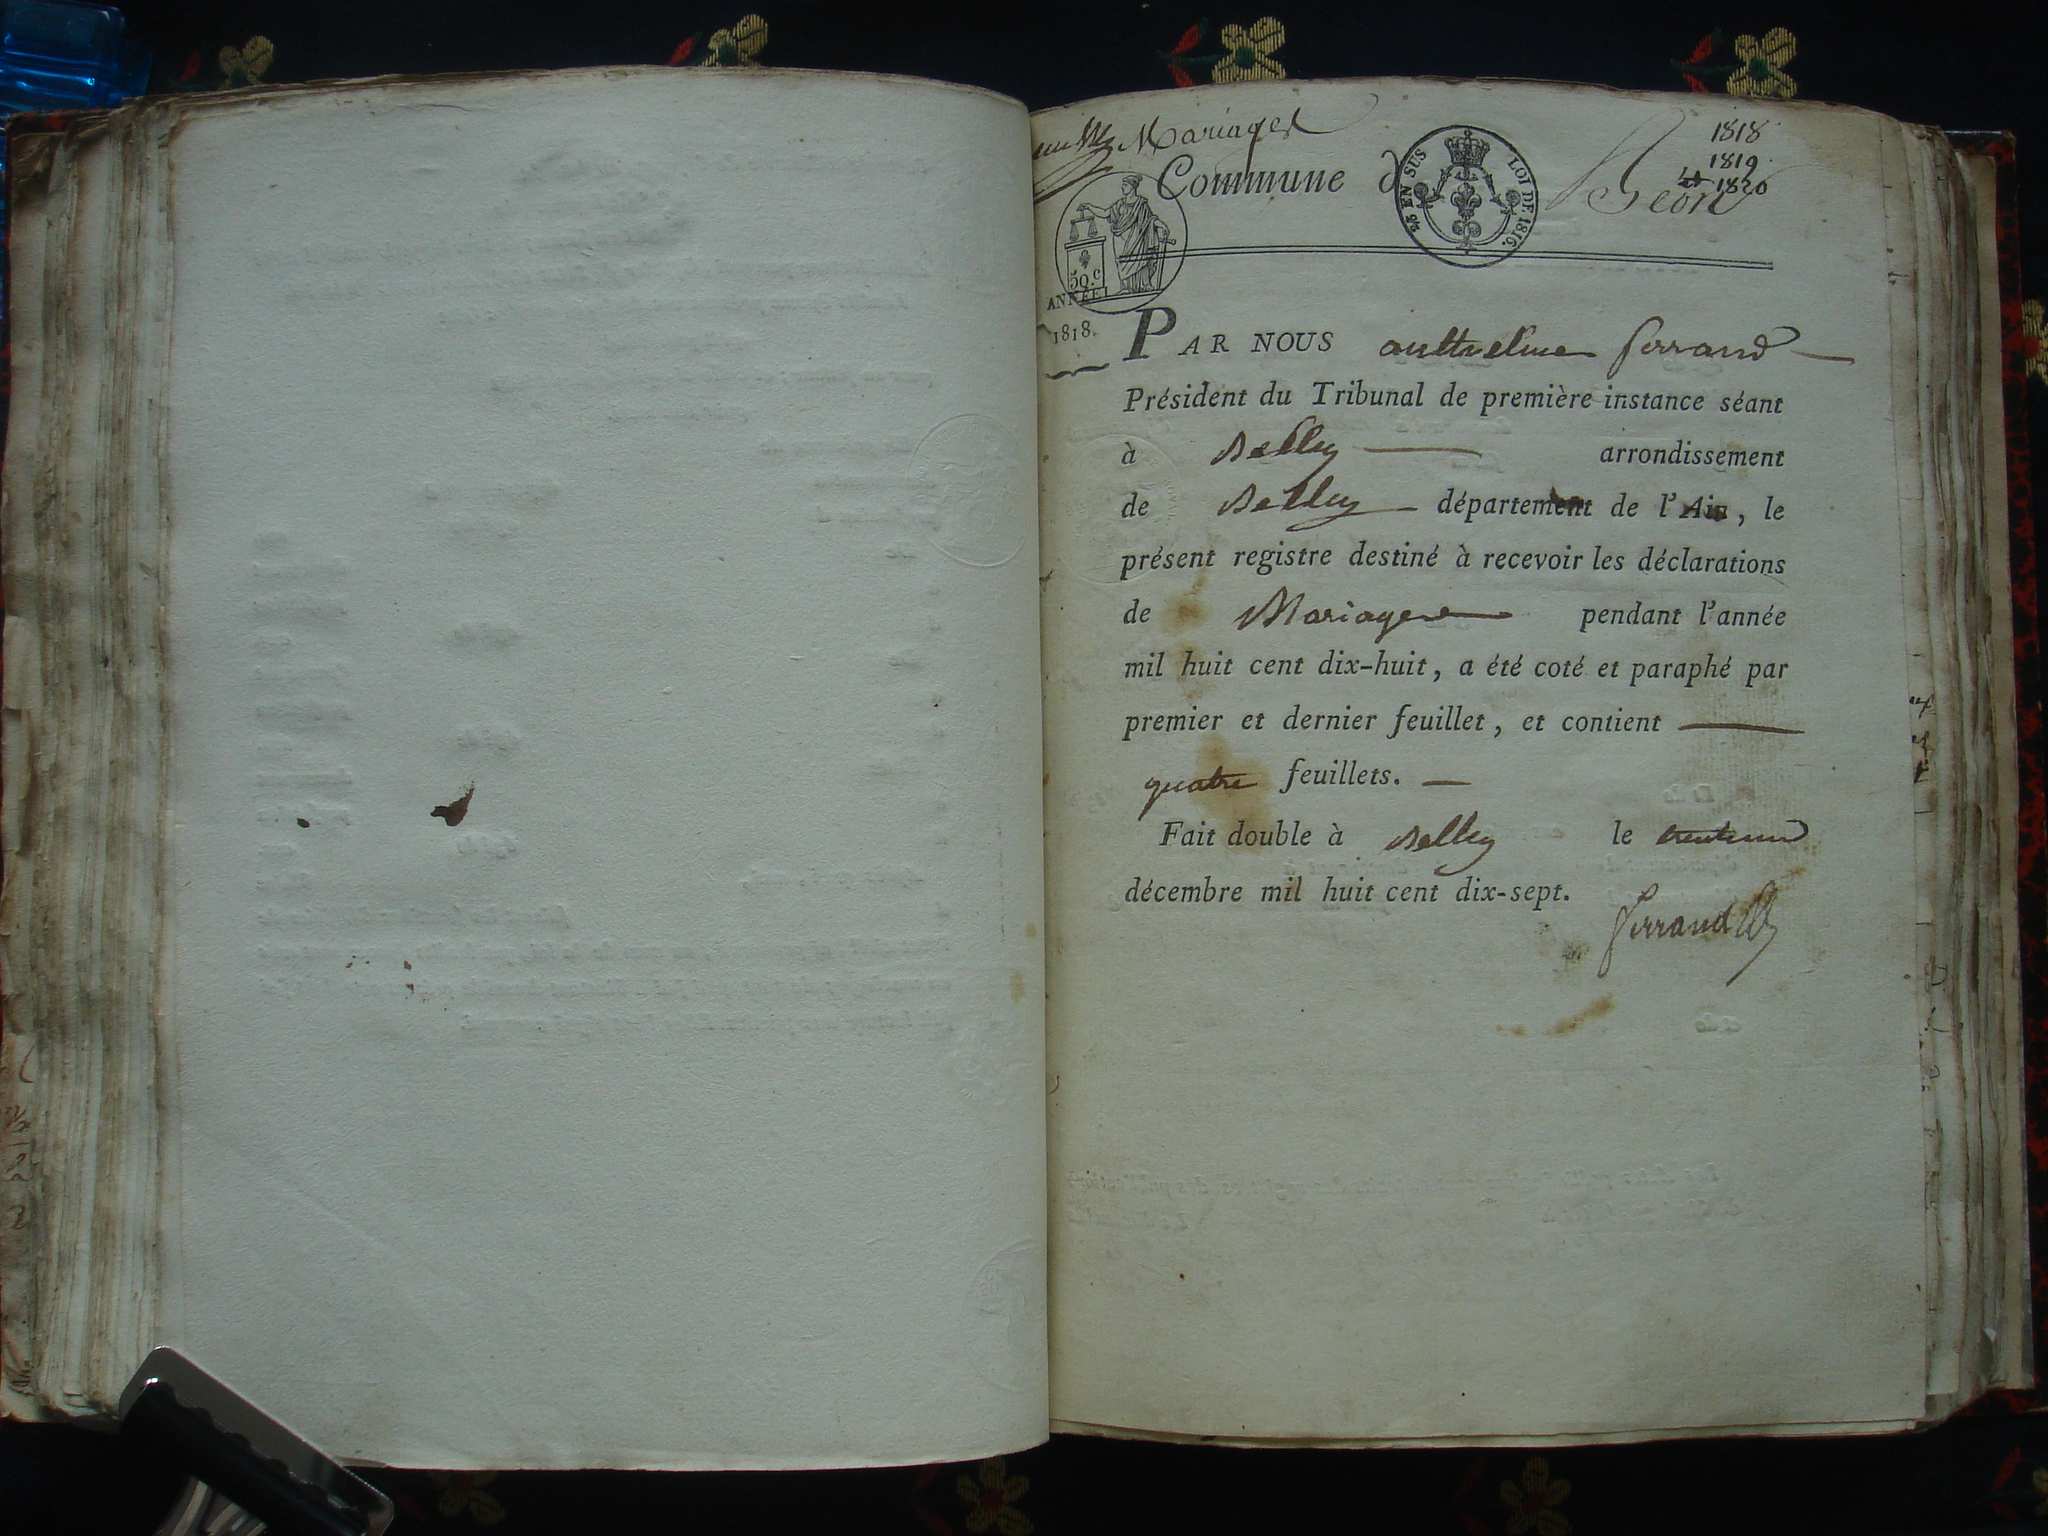 Mariages
1818
1819
1820
Commune d
Béon
2/5 EN SUS
LOI DE 1816.
50.c
ANNÉE
1818.
PAR NOUS anthelme ferrand
Président du Tribunal de première instance séant
à Belley arrondissement
de Belley département de l'Ain, le
présent registre destiné à recevoir les déclarations
de Mariages pendant l'année
mil huit cent dix-huit, a été coté et paraphé par
premier et dernier feuillet, et contient
quatre feuillets.
Fait double à Belley le trente un
décembre mil huit cent dix-sept.
ferrand